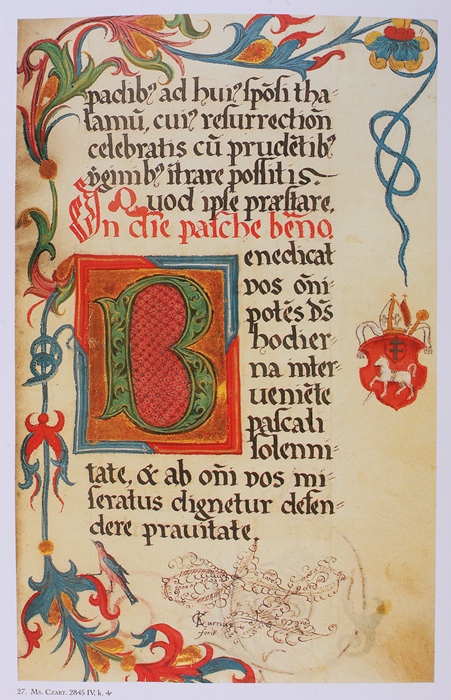 padib⁹ ad hui⁹ spōsi tha-
lamū, cui⁹ resurrectiōn
celebratis cū prudētib⁹
v̄ginib⁹ ītrare possitis
Quod ipse præstare.
In die pasche bēno
Benedicat
vos oīni-
potēs ds̄
hodier
na inter-
veniēte
pascali
solenni-
tate, & ab oīni vos mi-
seratus dignetur defen-
dere pravitate.
fecit
27. Ms. Czart. 2845 IV, k. 4r